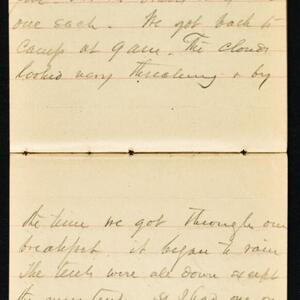 one each. We got back to
camp at 9 am. The clouds
looked very threatening & by
the time we got through our
breakfast it began to rain
The tents were all down except
the mess tent. as I had my on